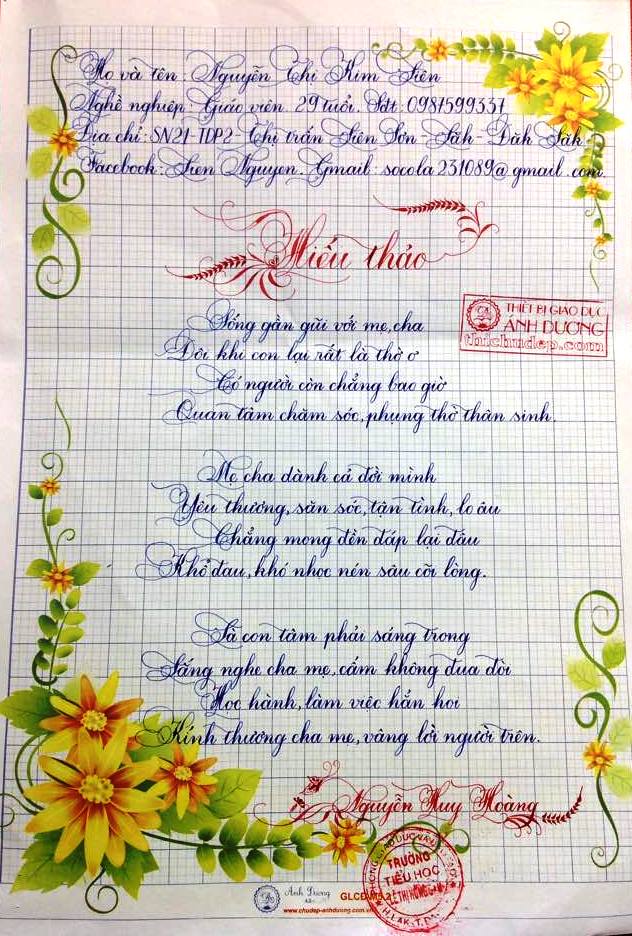 Họ và tên : Nguyễn Thị Kim Liên
Nghề nghiệp : Giáo viên. 29 tuổi. Sđt : 0987599337
Địa chỉ : SN21 - TDP2 - Thị trấn Liên Sơn - Lăk - Đăk Lăk.
Facebook : Lien Nguyen. Gmail : socola231089@gmail.com.
Hiếu thảo
THIẾT BỊ GIÁO DỤC
ÁNH DƯƠNG
thichudep.com
Sống gần gũi với mẹ, cha
Đôi khi con lại rất là thờ ơ
Có người còn chẳng bao giờ
Quan tâm chăm sóc, phụng thờ thân sinh.
Mẹ cha dành cả đời mình
Yêu thương, săn sóc, tận tình, lo âu
Chẳng mong đền đáp lại đâu
Khổ đau, khó nhọc nén sâu cõi lòng.
Là con tâm phải sáng trong
Lắng nghe cha mẹ, cấm không đua đòi
Học hành, làm việc hẳn hoi
Kính thương cha mẹ, vâng lời người trên.
Nguyễn Huy Hoàng
TRƯỜNG
TIỂU HỌC
LÊ THỊ HỒNG GẤM
H.LĂK - T.
Ánh Dương
www.chudep-anhduong.com